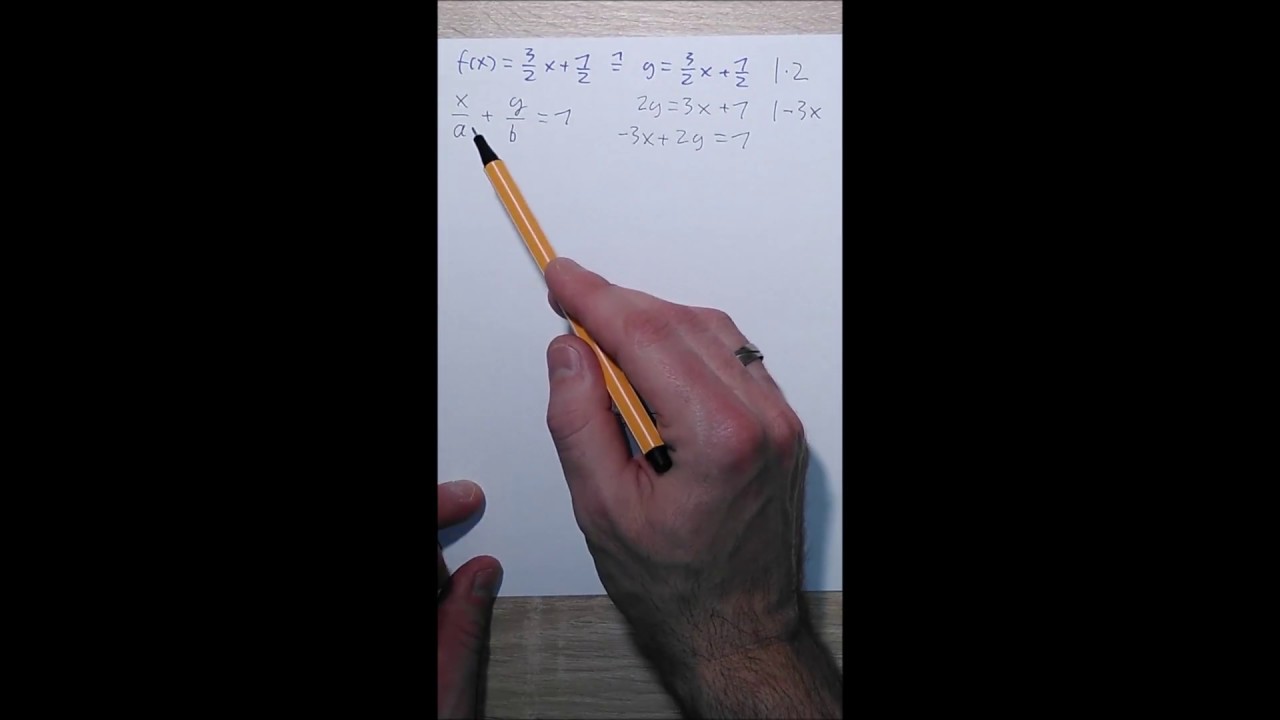 f(x) = 3/2 x + 1/2 ≙ y = 3/2 x + 1/2 | · 2
x/a + y/b = 1 2y = 3x + 1 | -3x
-3x + 2y = 1